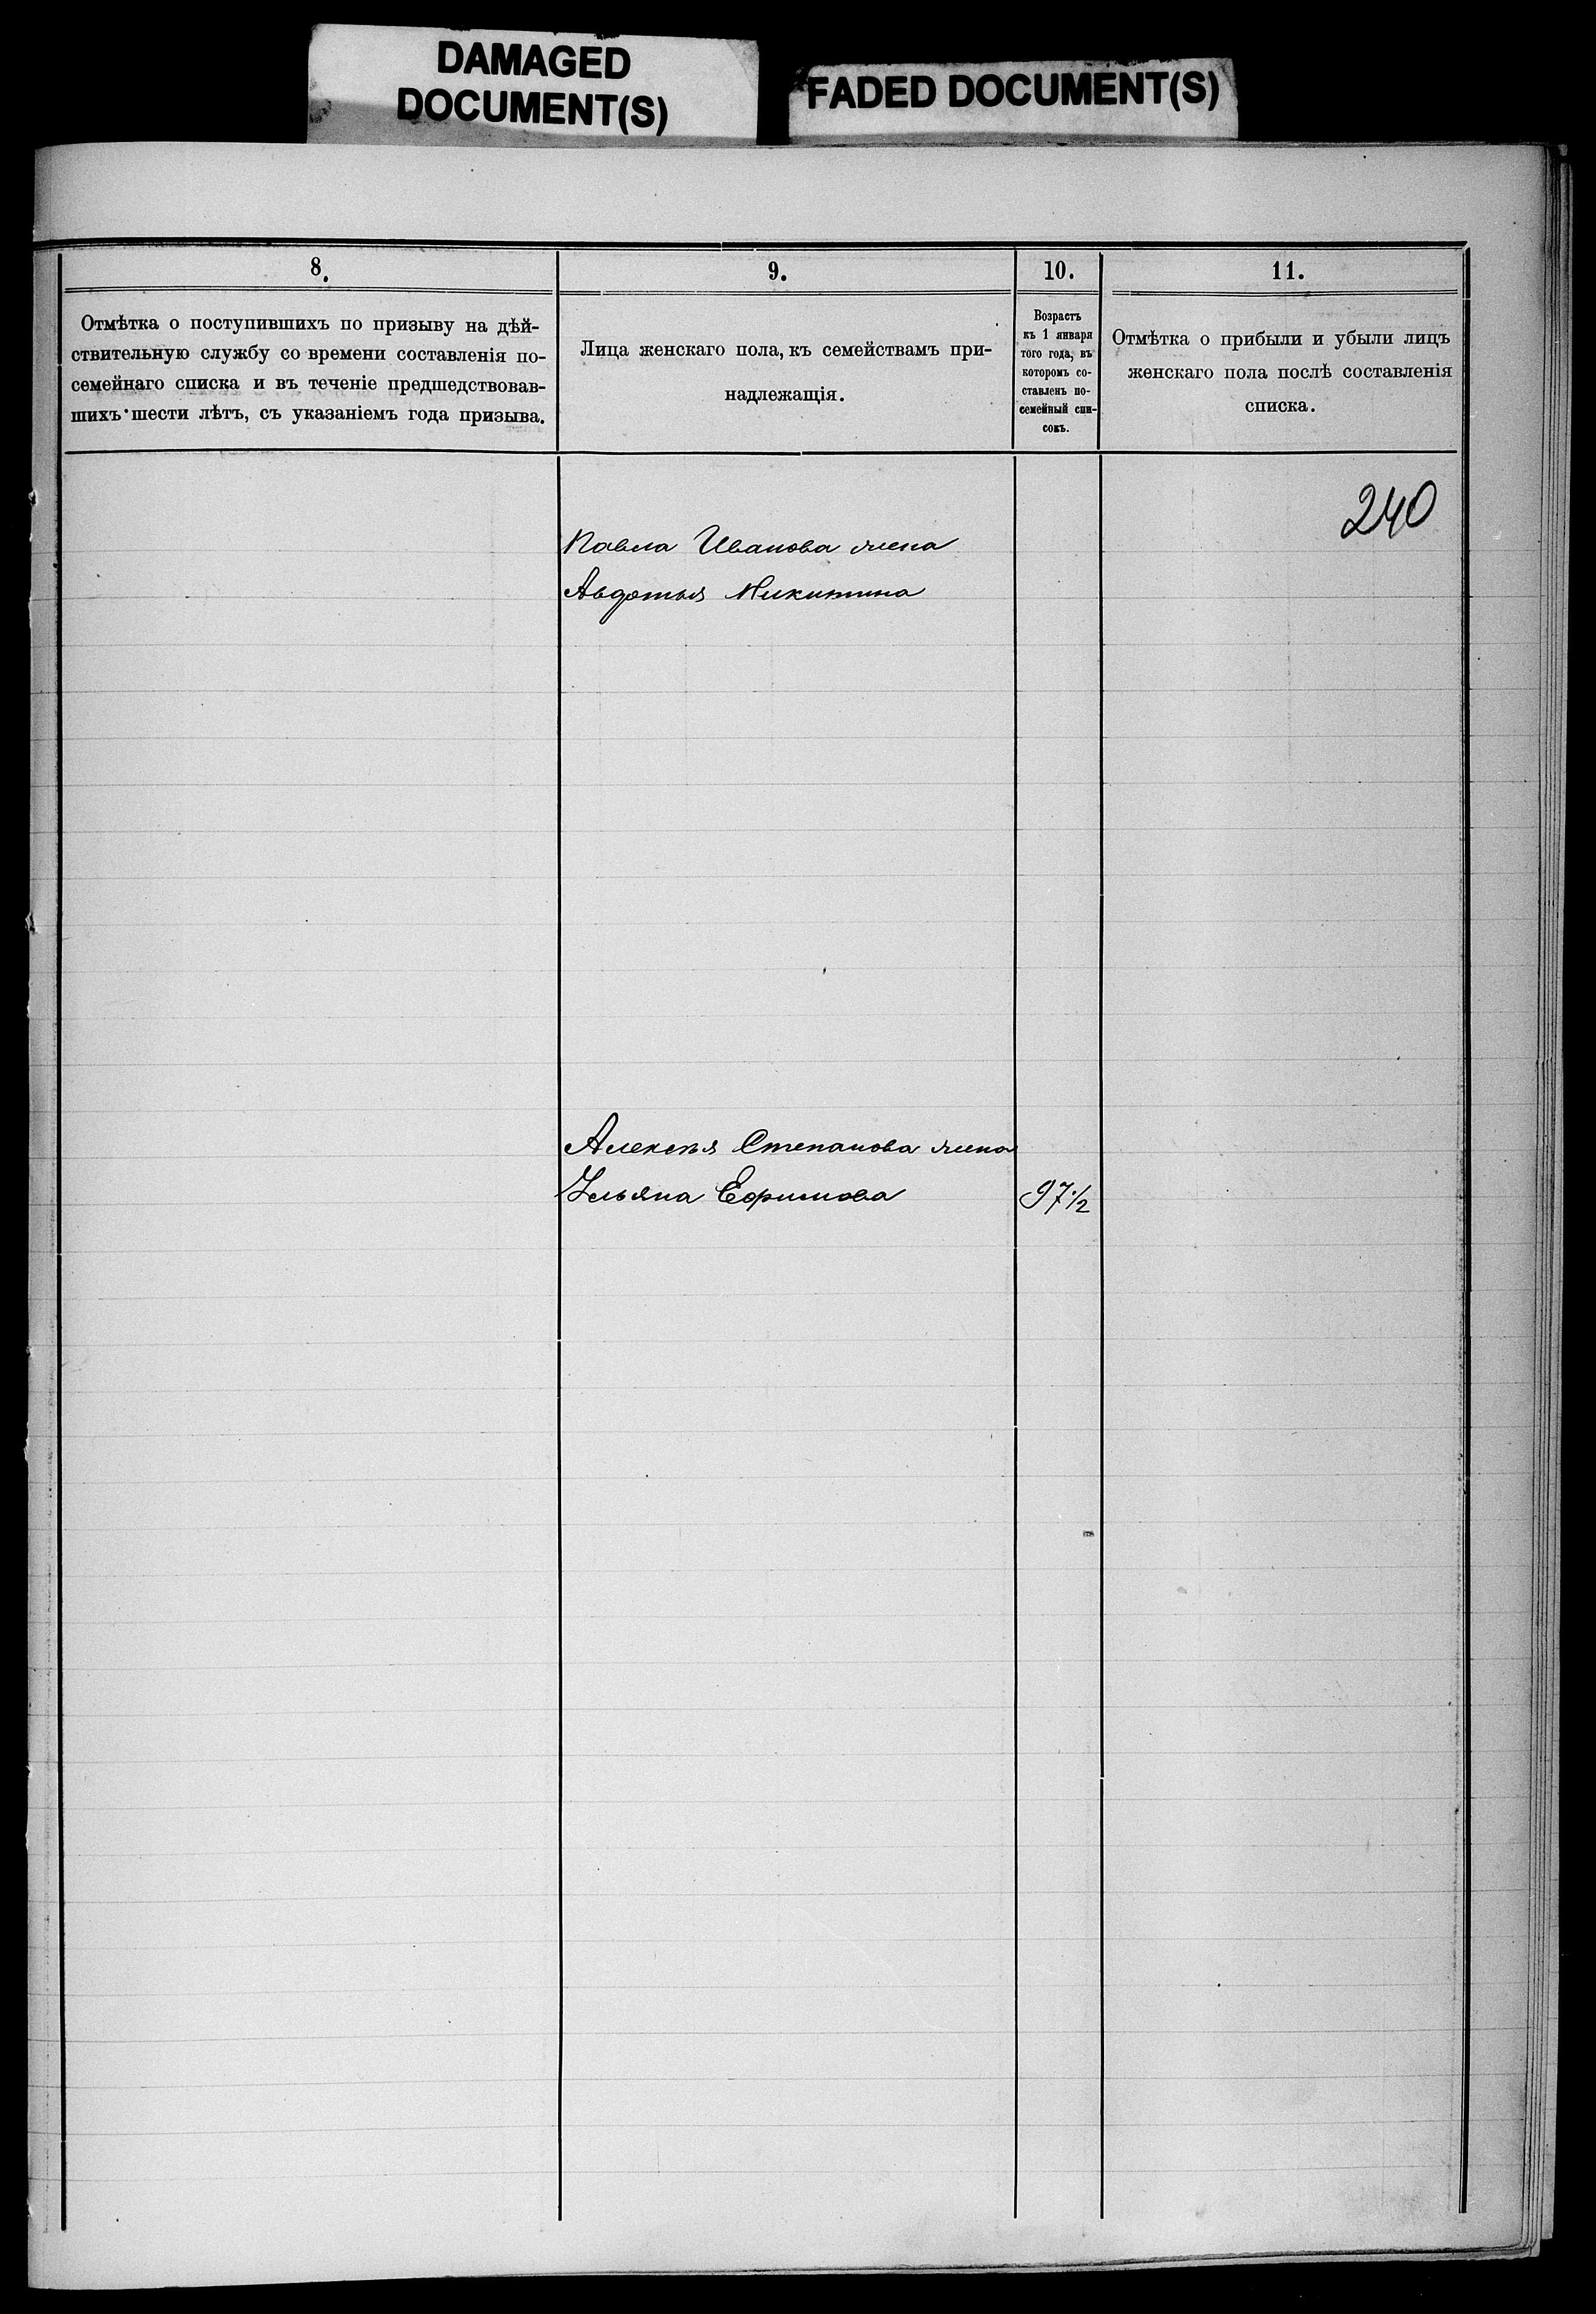 DAMAGED
DOCUMENT(S)
FADED DOCUMENT(S)
8.
Отмѣтка о поступившихъ по призыву на дѣй-
ствительную службу со времени составленія по-
семейнаго списка и въ теченіе предшедствовав-
шихъ шести лѣтъ, съ указаніемъ года призыва.
9.
Лица женскаго пола, къ семействамъ при-
надлежащія.
10.
Возрастъ
къ 1 января
того года, въ
которомъ со-
ставленъ по-
семейный спи-
сокъ.
11.
Отмѣтка о прибыли и убыли лицъ
женскаго пола послѣ составленія
списка.
240
Павла Иванова жена
Авдотья Никитина
Алексѣя Степанова жена
Ульяна Ефимова 97 1/2